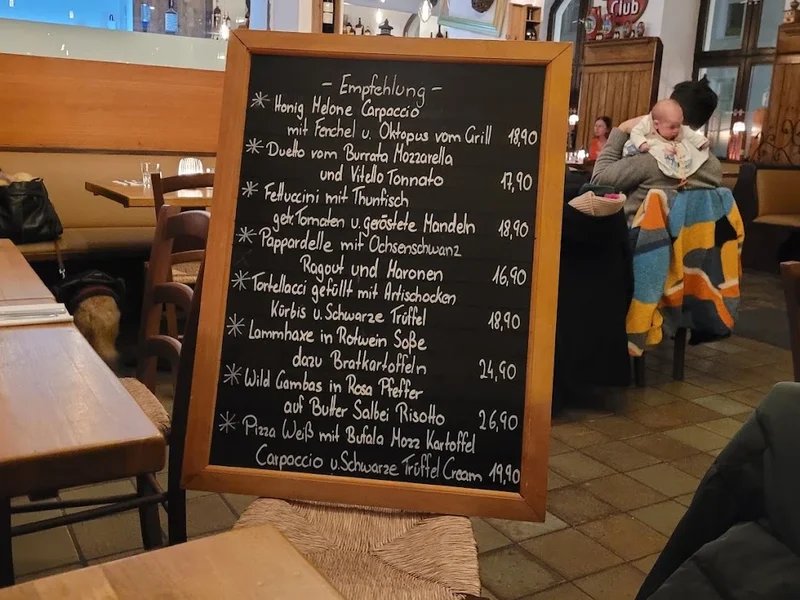 Club
- Empfehlung -
* Honig Melone Carpaccio
mit Fenchel u. Oktopus vom Grill 18,90
* Duetto vom Burrata Mozzarella
und Vitello Tonnato 17,90
* Fettuccini mit Thunfisch
getr. Tomaten u. geröstete Mandeln 18,90
* Pappardelle mit Ochsenschwanz
Ragout und Maronen 16,90
* Tortellacci gefüllt mit Artischocken
Kürbis u. Schwarze Trüffel 18,90
* Lammhaxe in Rotwein Soße
dazu Bratkartoffeln 24,90
* Wild Gambas in Rosa Pfeffer
auf Butter Salbei Risotto 26,90
* Pizza Weiß mit Bufala Mozz Kartoffel
Carpaccio u. Schwarze Trüffel Cream 19,90